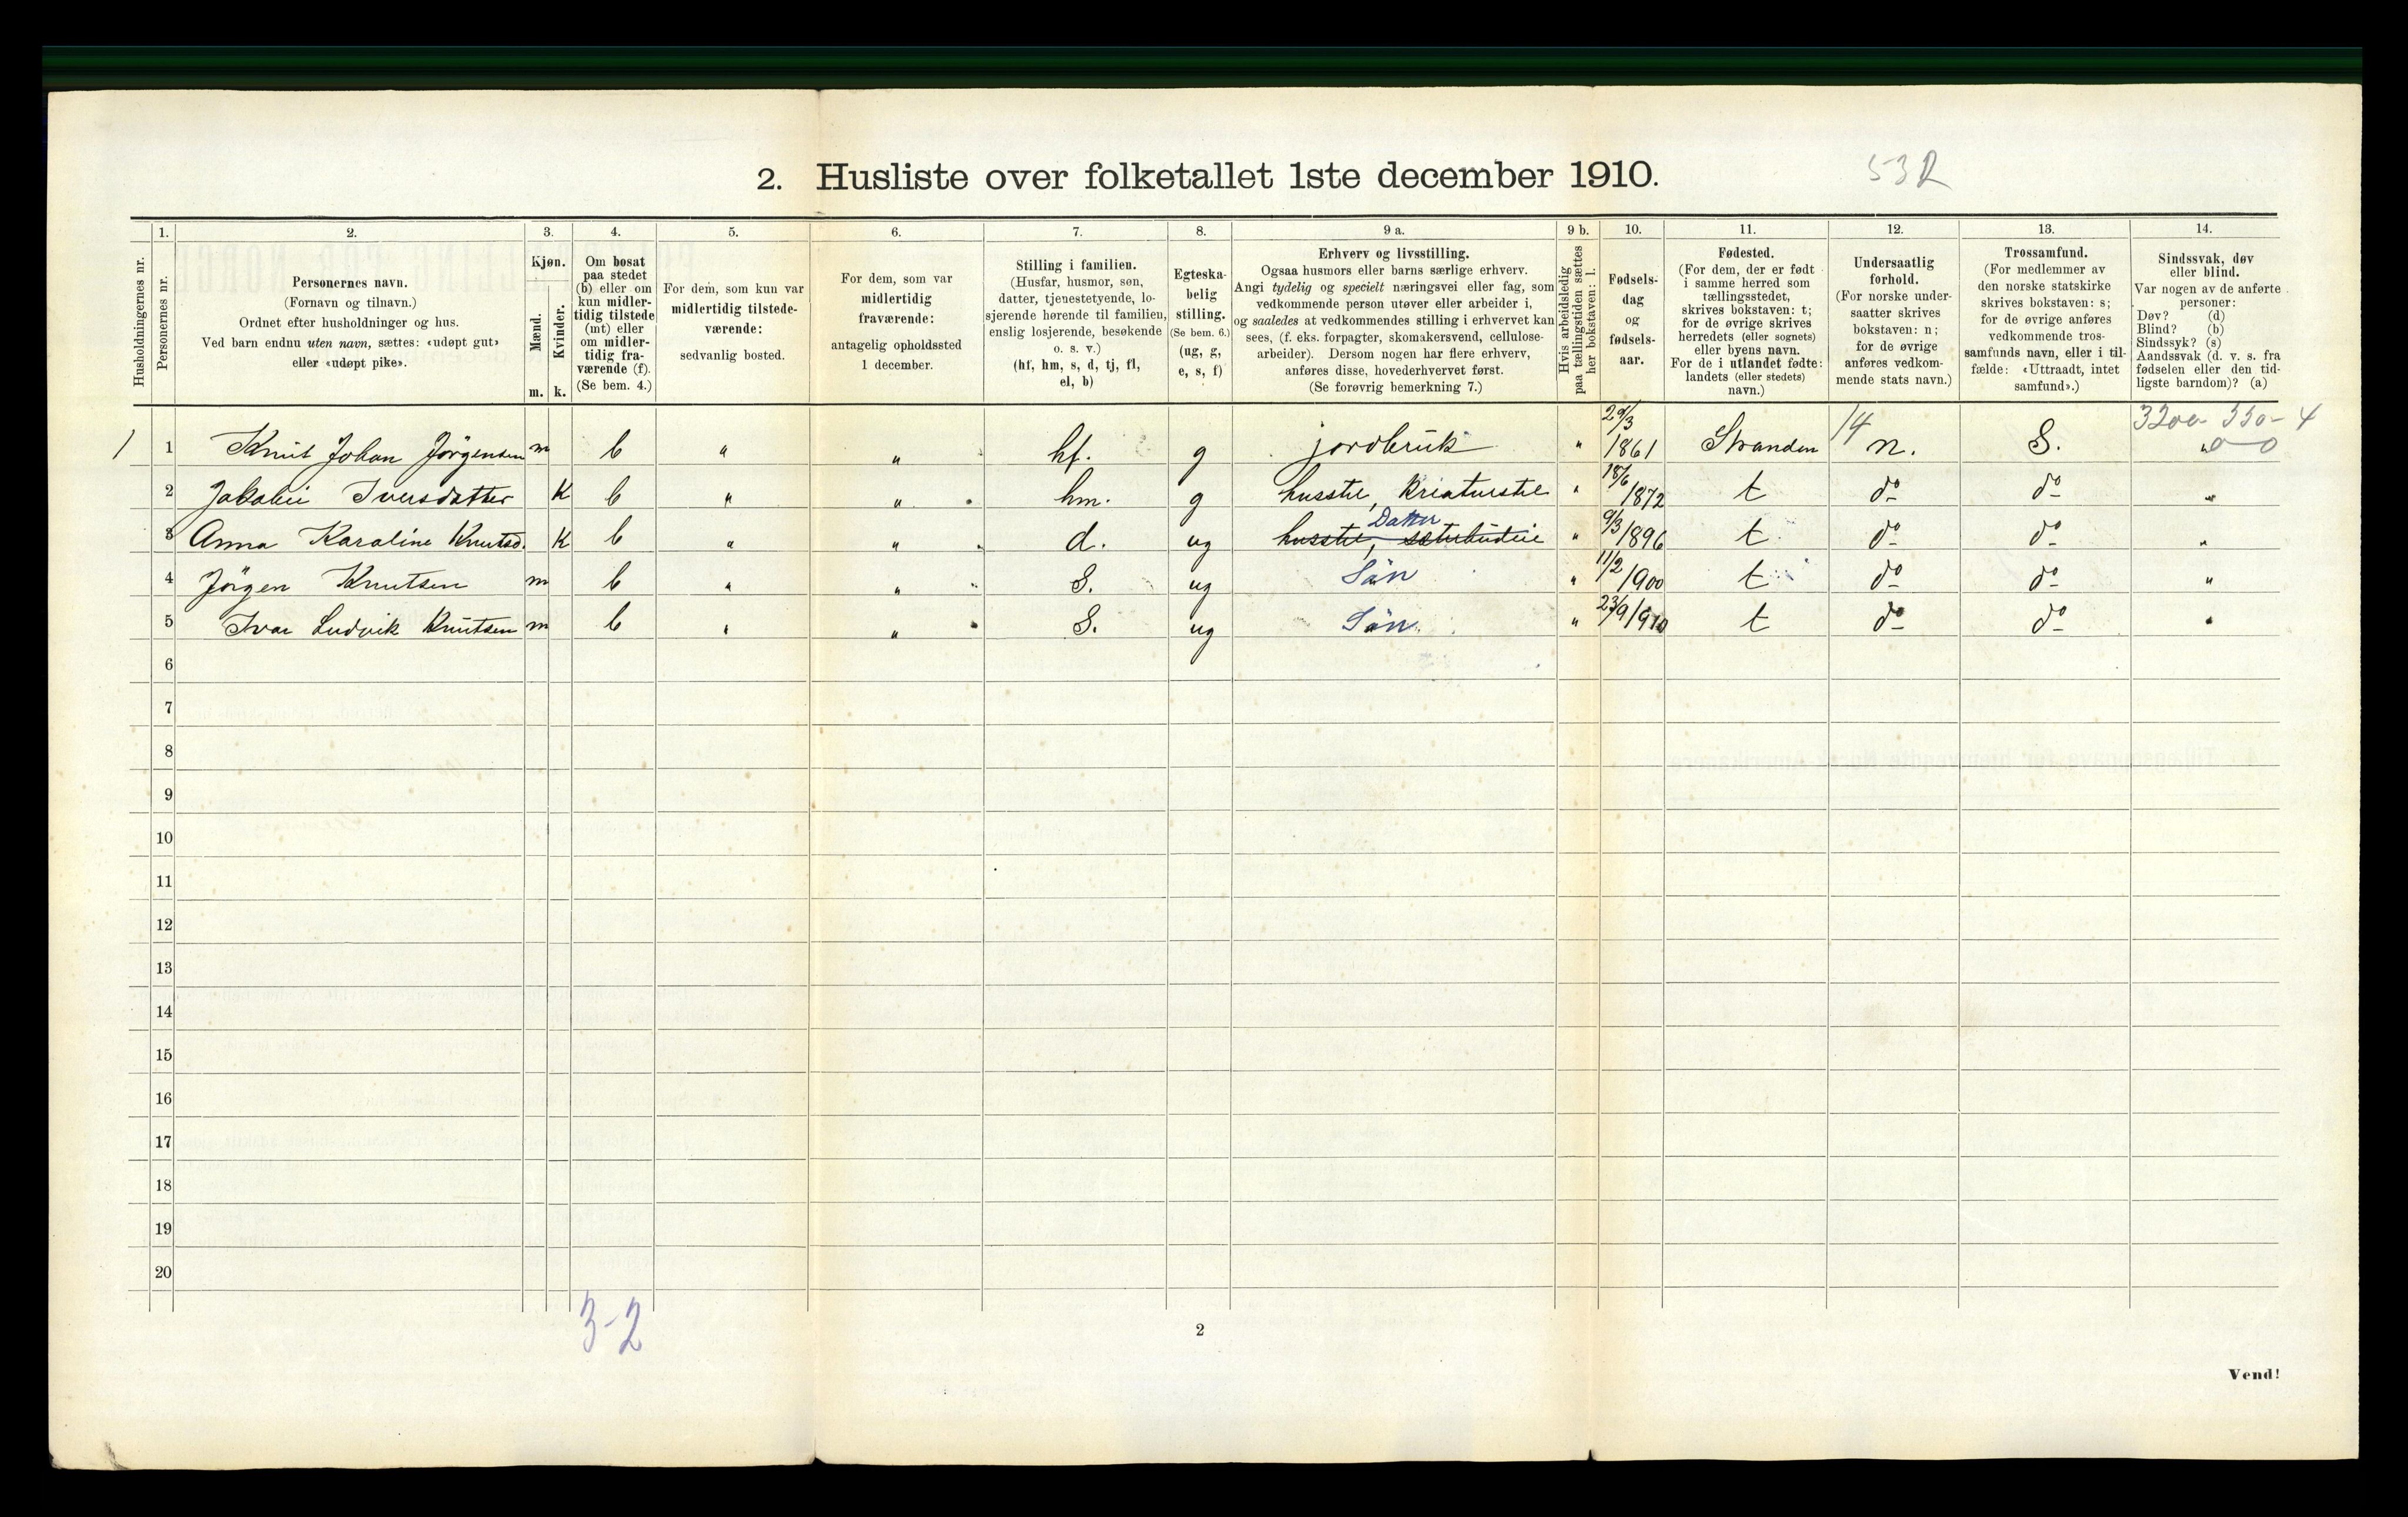 2. Husliste over folketallet 1ste december 1910.
53R
Husholdningernes nr.
1. Personernes nr.
2. Personernes navn.
(Fornavn og tilnavn.)
Ordnet efter husholdninger og hus.
Ved barn endnu uten navn, sættes: «udøpt gut»
eller «udøpt pike».
3. Kjøn.
Mænd. m.
Kvinder. k.
4. Om bosat
paa stedet
(b) eller om
kun midler-
tidig tilstede
(mt) eller
om midler-
tidig fra-
værende (f).
(Se bem. 4.)
5. For dem, som kun var
midlertidig tilstede-
værende:
sedvanlig bosted.
6. For dem, som var
midlertidig
fraværende:
antagelig opholdssted
1 december.
7. Stilling i familien.
(Husfar, husmor, søn,
datter, tjenestetyende, lo-
sjerende hørende til familien,
enslig losjerende, besøkende
o. s. v.)
(hf, hm, s, d, tj, fl,
el, b)
8. Egteska-
belig
stilling.
(Se bem. 6.)
(ug, g,
e, s, f)
9 a. Erhverv og livsstilling.
Ogsaa husmors eller barns særlige erhverv.
Angi tydelig og specielt næringsvei eller fag, som
vedkommende person utøver eller arbeider i,
og saaledes at vedkommendes stilling i erhvervet kan
sees, (f. eks. forpagter, skomakersvend, cellulose-
arbeider). Dersom nogen har flere erhverv,
anføres disse, hovederhvervet først.
(Se forøvrig bemerkning 7.)
9 b. Hvis arbeidsledig
paa tællingstiden sættes
her bokstaven: l.
10. Fødsels-
dag
og
fødsels-
aar.
11. Fødested.
(For dem, der er født
i samme herred som
tællingsstedet,
skrives bokstaven: t;
for de øvrige skrives
herredets (eller sognets)
eller byens navn.
For de i utlandet fødte:
landets (eller stedets)
navn.)
12. Undersaatlig
forhold.
(For norske under-
saatter skrives
bokstaven: n;
for de øvrige
anføres vedkom-
mende stats navn.)
13. Trossamfund.
(For medlemmer av
den norske statskirke
skrives bokstaven: s;
for de øvrige anføres
vedkommende tros-
samfunds navn, eller i til-
fælde: «Uttraadt, intet
samfund».)
14. Sindssvak, døv
eller blind.
Var nogen av de anførte
personer:
Døv? (d)
Blind? (b)
Sindssyk? (s)
Aandssvak (d. v. s. fra
fødselen eller den tid-
ligste barndom)? (a)
1 1 Knut Johan Jörgensen m b " " hf. g jordbruk " 29/3 1861 Stranden 14 n. S. "
2 Jakobie Iversdatter K b " " hm. g husstel, Kreaturstel " 18/6 1872 t do do "
3 Anna Karoline Knutsd. K b " " d. ug husstel, sæterbudeie Datter " 9/3 1896 t do do "
4 Jörgen Knutsen m b " " S. ug Sön " 11/2 1900 t do do "
5 Ivar Ludvik Knutsen m b " " S. ug Sön " 23/9 1910 t do do "
6
7
8
9
10
11
12
13
14
15
16
17
18
19
20
3-2
2
Vend!